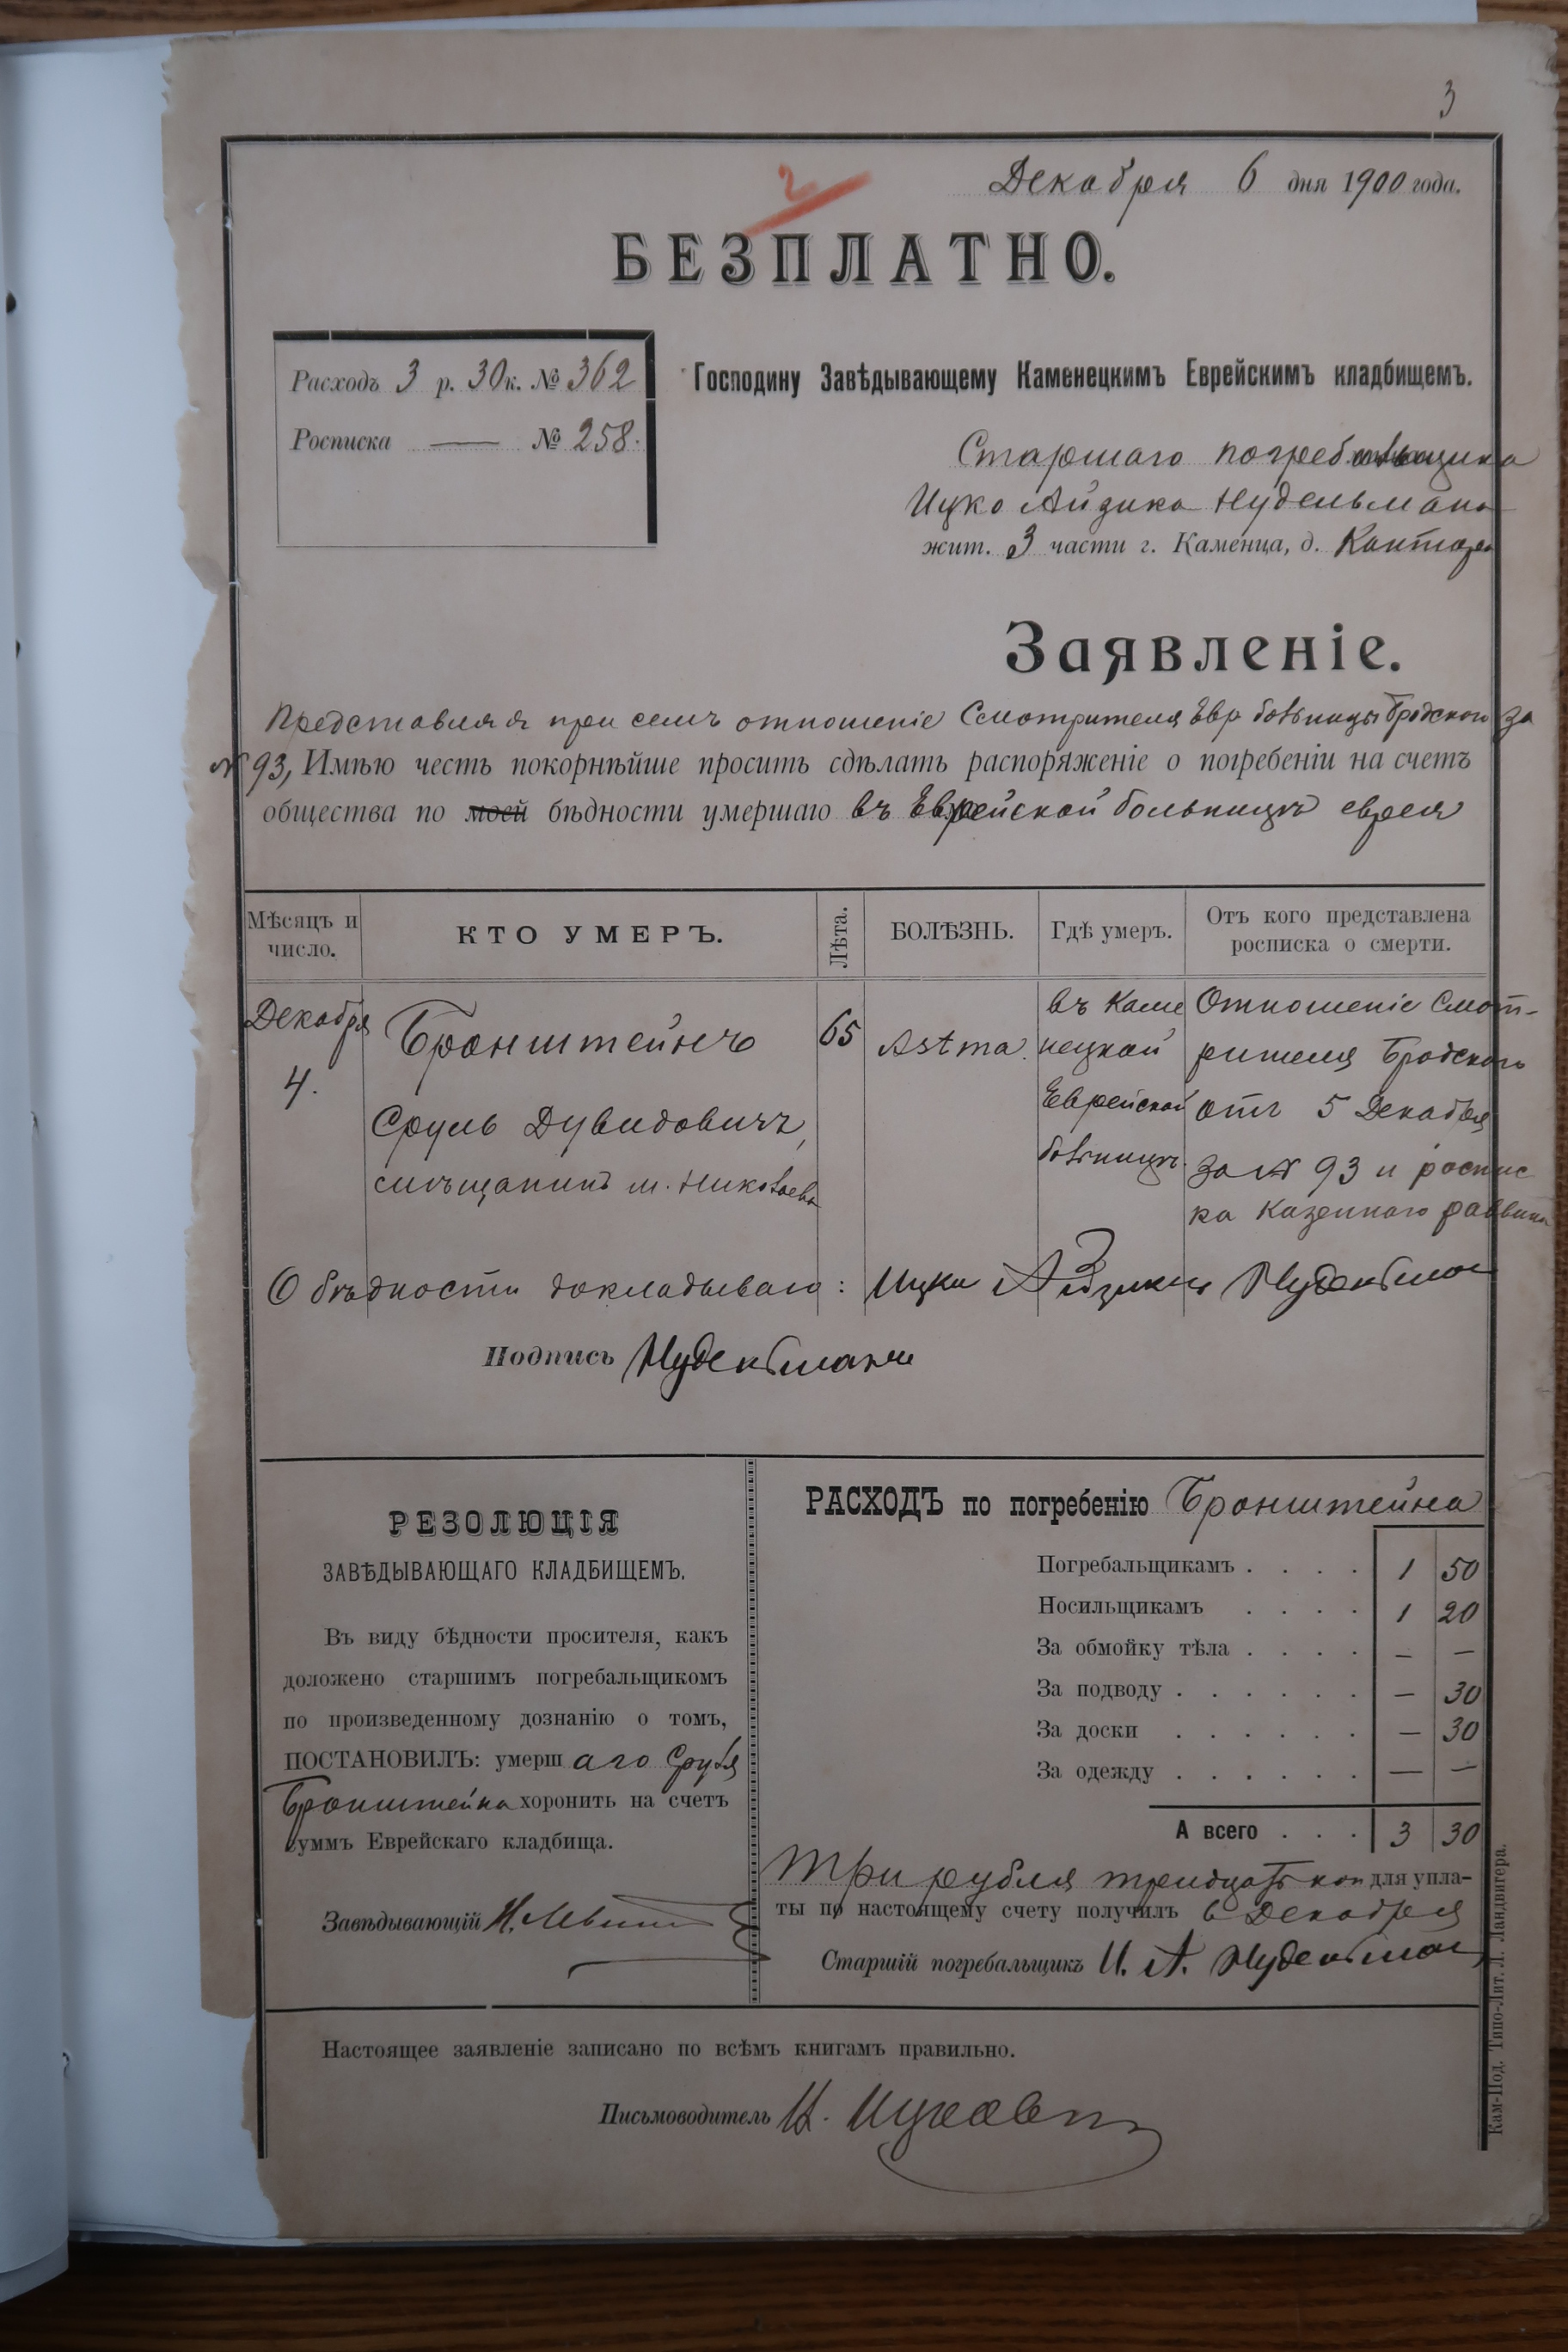 3
2
Декабря 6 дня 1900 года.
БЕЗПЛАТНО.
Расходъ 3 р. 30к. № 362
Росписка — № 258.
Господину Завѣдывающему Каменецкимъ Еврейскимъ кладбищемъ.
Старшаго погребальщика
Ицко Айзика Нудельмана
жит. 3 части г. Каменца, д. Кантора
Заявленіе.
Представляя при семъ отношеніе Смотрителя Евр больницы Бродского за
№ 93, Имѣю честь покорнѣйше просить сдѣлать распоряженіе о погребеніи на счетъ
общества по моей бѣдности умершаго въ Еврейской больницѣ еврея
Мѣсяцъ и число.
КТО УМЕРЪ.
Лѣта.
БОЛѢЗНЬ.
Гдѣ умеръ.
Отъ кого представлена
росписка о смерти.
Декабря
4.
Бронштейнъ
Сруль Дувидовичъ,
мѣщанинъ м. Николаева
65
Astma.
въ Каме
нецкой
Еврейской
больницѣ.
Отношеніе Смот-
рителя Бродского
отъ 5 Декабря
за № 93 и роспис
ка Казеннаго раввина
О бѣдности докладываю: Ицко Айзикъ Нудельман
Подпись Нудельман
РЕЗОЛЮЦІЯ
ЗАВѢДЫВАЮЩАГО КЛАДБИЩЕМЪ.
Въ виду бѣдности просителя, какъ
доложено старшимъ погребальщикомъ
по произведенному дознанію о томъ,
ПОСТАНОВИЛЪ: умершаго Сруля
Бронштейна хоронить на счетъ
суммъ Еврейскаго кладбища.
Завѣдывающій
РАСХОДЪ по погребенію Бронштейна
Погребальщикамъ . . . . 1 50
Носильщикамъ . . . . 1 20
За обмойку тѣла . . . . — —
За подводу . . . . . . — 30
За доски . . . . . . — 30
За одежду . . . . . . — —
А всего . . . 3 30
Три рубля тридцать коп для упла-
ты по настоящему счету получилъ 6 Декабря
Старшій погребальщикъ И. А. Нудельман
Настоящее заявленіе записано по всѣмъ книгамъ правильно.
Письмоводитель
Кам-Под. Типо-Лит. Л. Ландвигера.